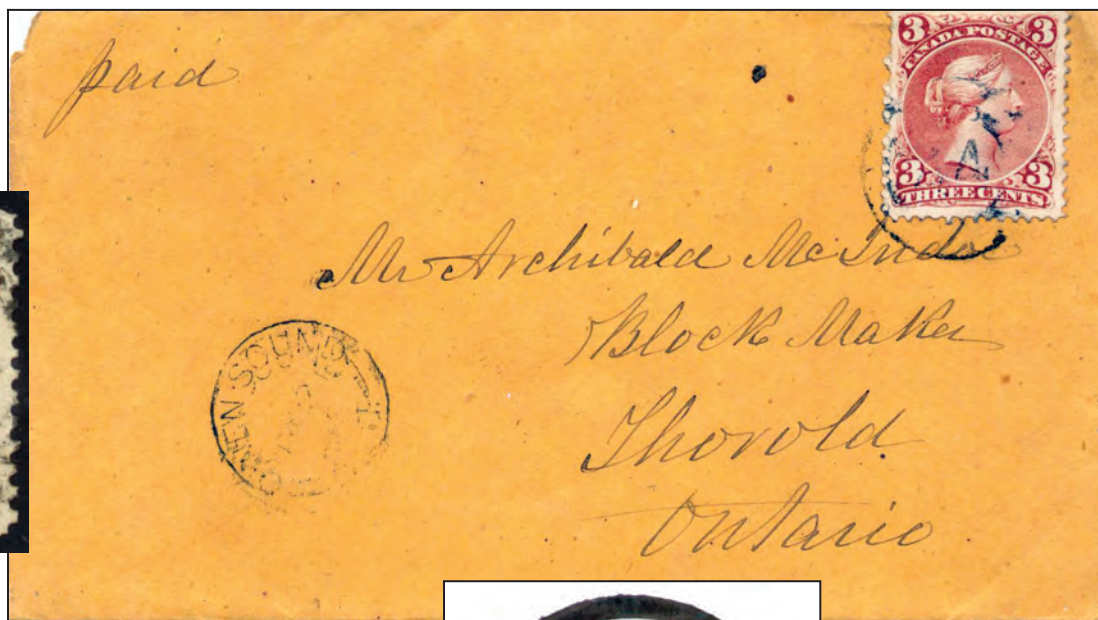 paid
3 CANADA POSTAGE 3
3 THREE CENTS 3
Mr Archibald McIndoe
Block Maker
Thorold
Ontario
OWEN SOUND